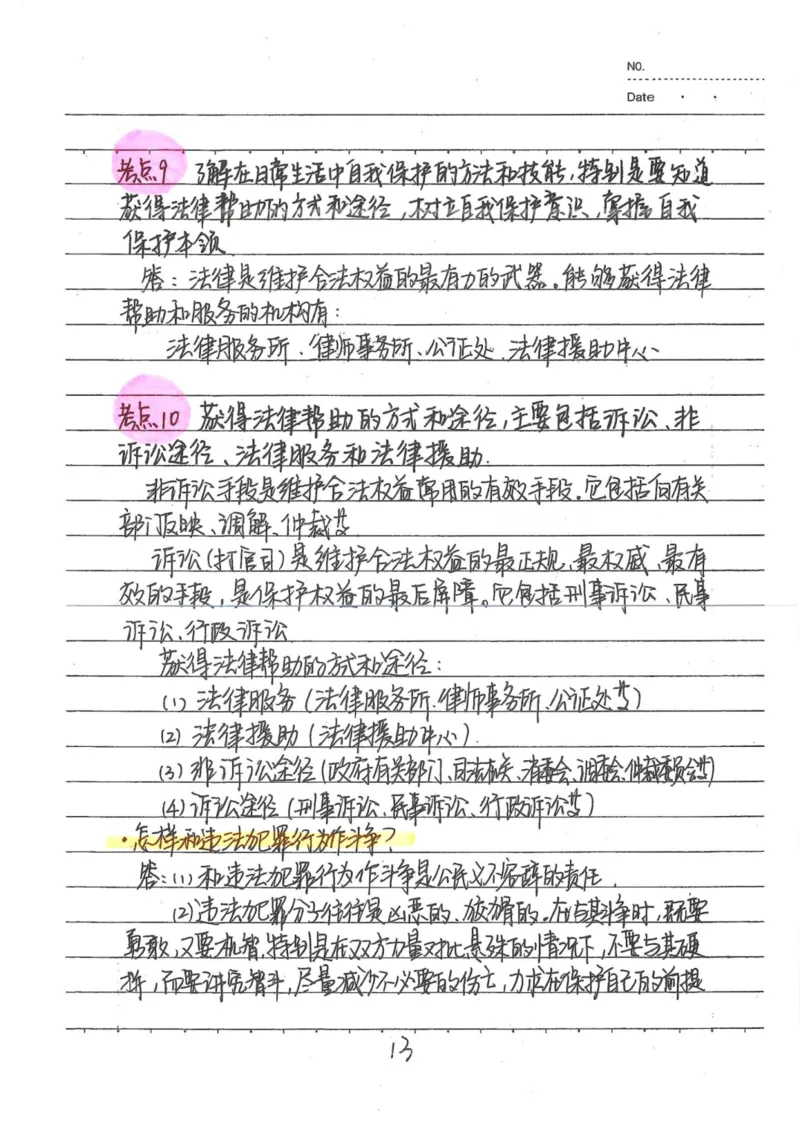 NO.
Date . .
考点9 了解在日常生活中自我保护的方法和技能,特别是要知道
获得法律帮助的方式和途径,树立自我保护意识,掌握自我
保护本领
答:法律是维护合法权益的最有力的武器。能够获得法律
帮助和服务的机构有:
法律服务所、律师事务所、公证处、法律援助中心
考点10 获得法律帮助的方式和途径,主要包括诉讼、非
诉讼途径、法律服务和法律援助.
非诉讼手段是维护合法权益常用的有效手段。它包括向有关
部门反映、调解、仲裁等
诉讼(打官司)是维护合法权益的最正规、最权威、最有
效的手段,是保护权益的最后屏障。它包括刑事诉讼、民事
诉讼、行政诉讼
获得法律帮助的方式和途径:
(1) 法律服务(法律服务所、律师事务所、公证处等)
(2) 法律援助(法律援助中心)
(3) 非诉讼途径(政府有关部门、司法机关、消委会、调委会、仲裁委员会等)
(4) 诉讼途径(刑事诉讼、民事诉讼、行政诉讼等)
·怎样和违法犯罪行为作斗争?
答:(1)和违法犯罪行为作斗争是公民义不容辞的责任.
(2)违法犯罪分子往往是凶恶的、狡猾的。在与其斗争时,既要
勇敢,又要机智.特别是在双方力量对比悬殊的情况下,不要与其硬
拼,而要讲究智斗,尽量减少不必要的伤亡,力求在保护自己的前提
13